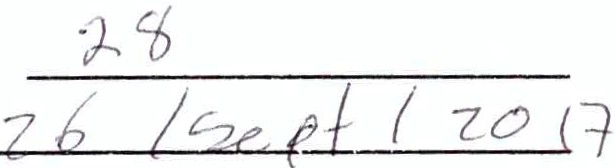 28
26 / Sept / 2017